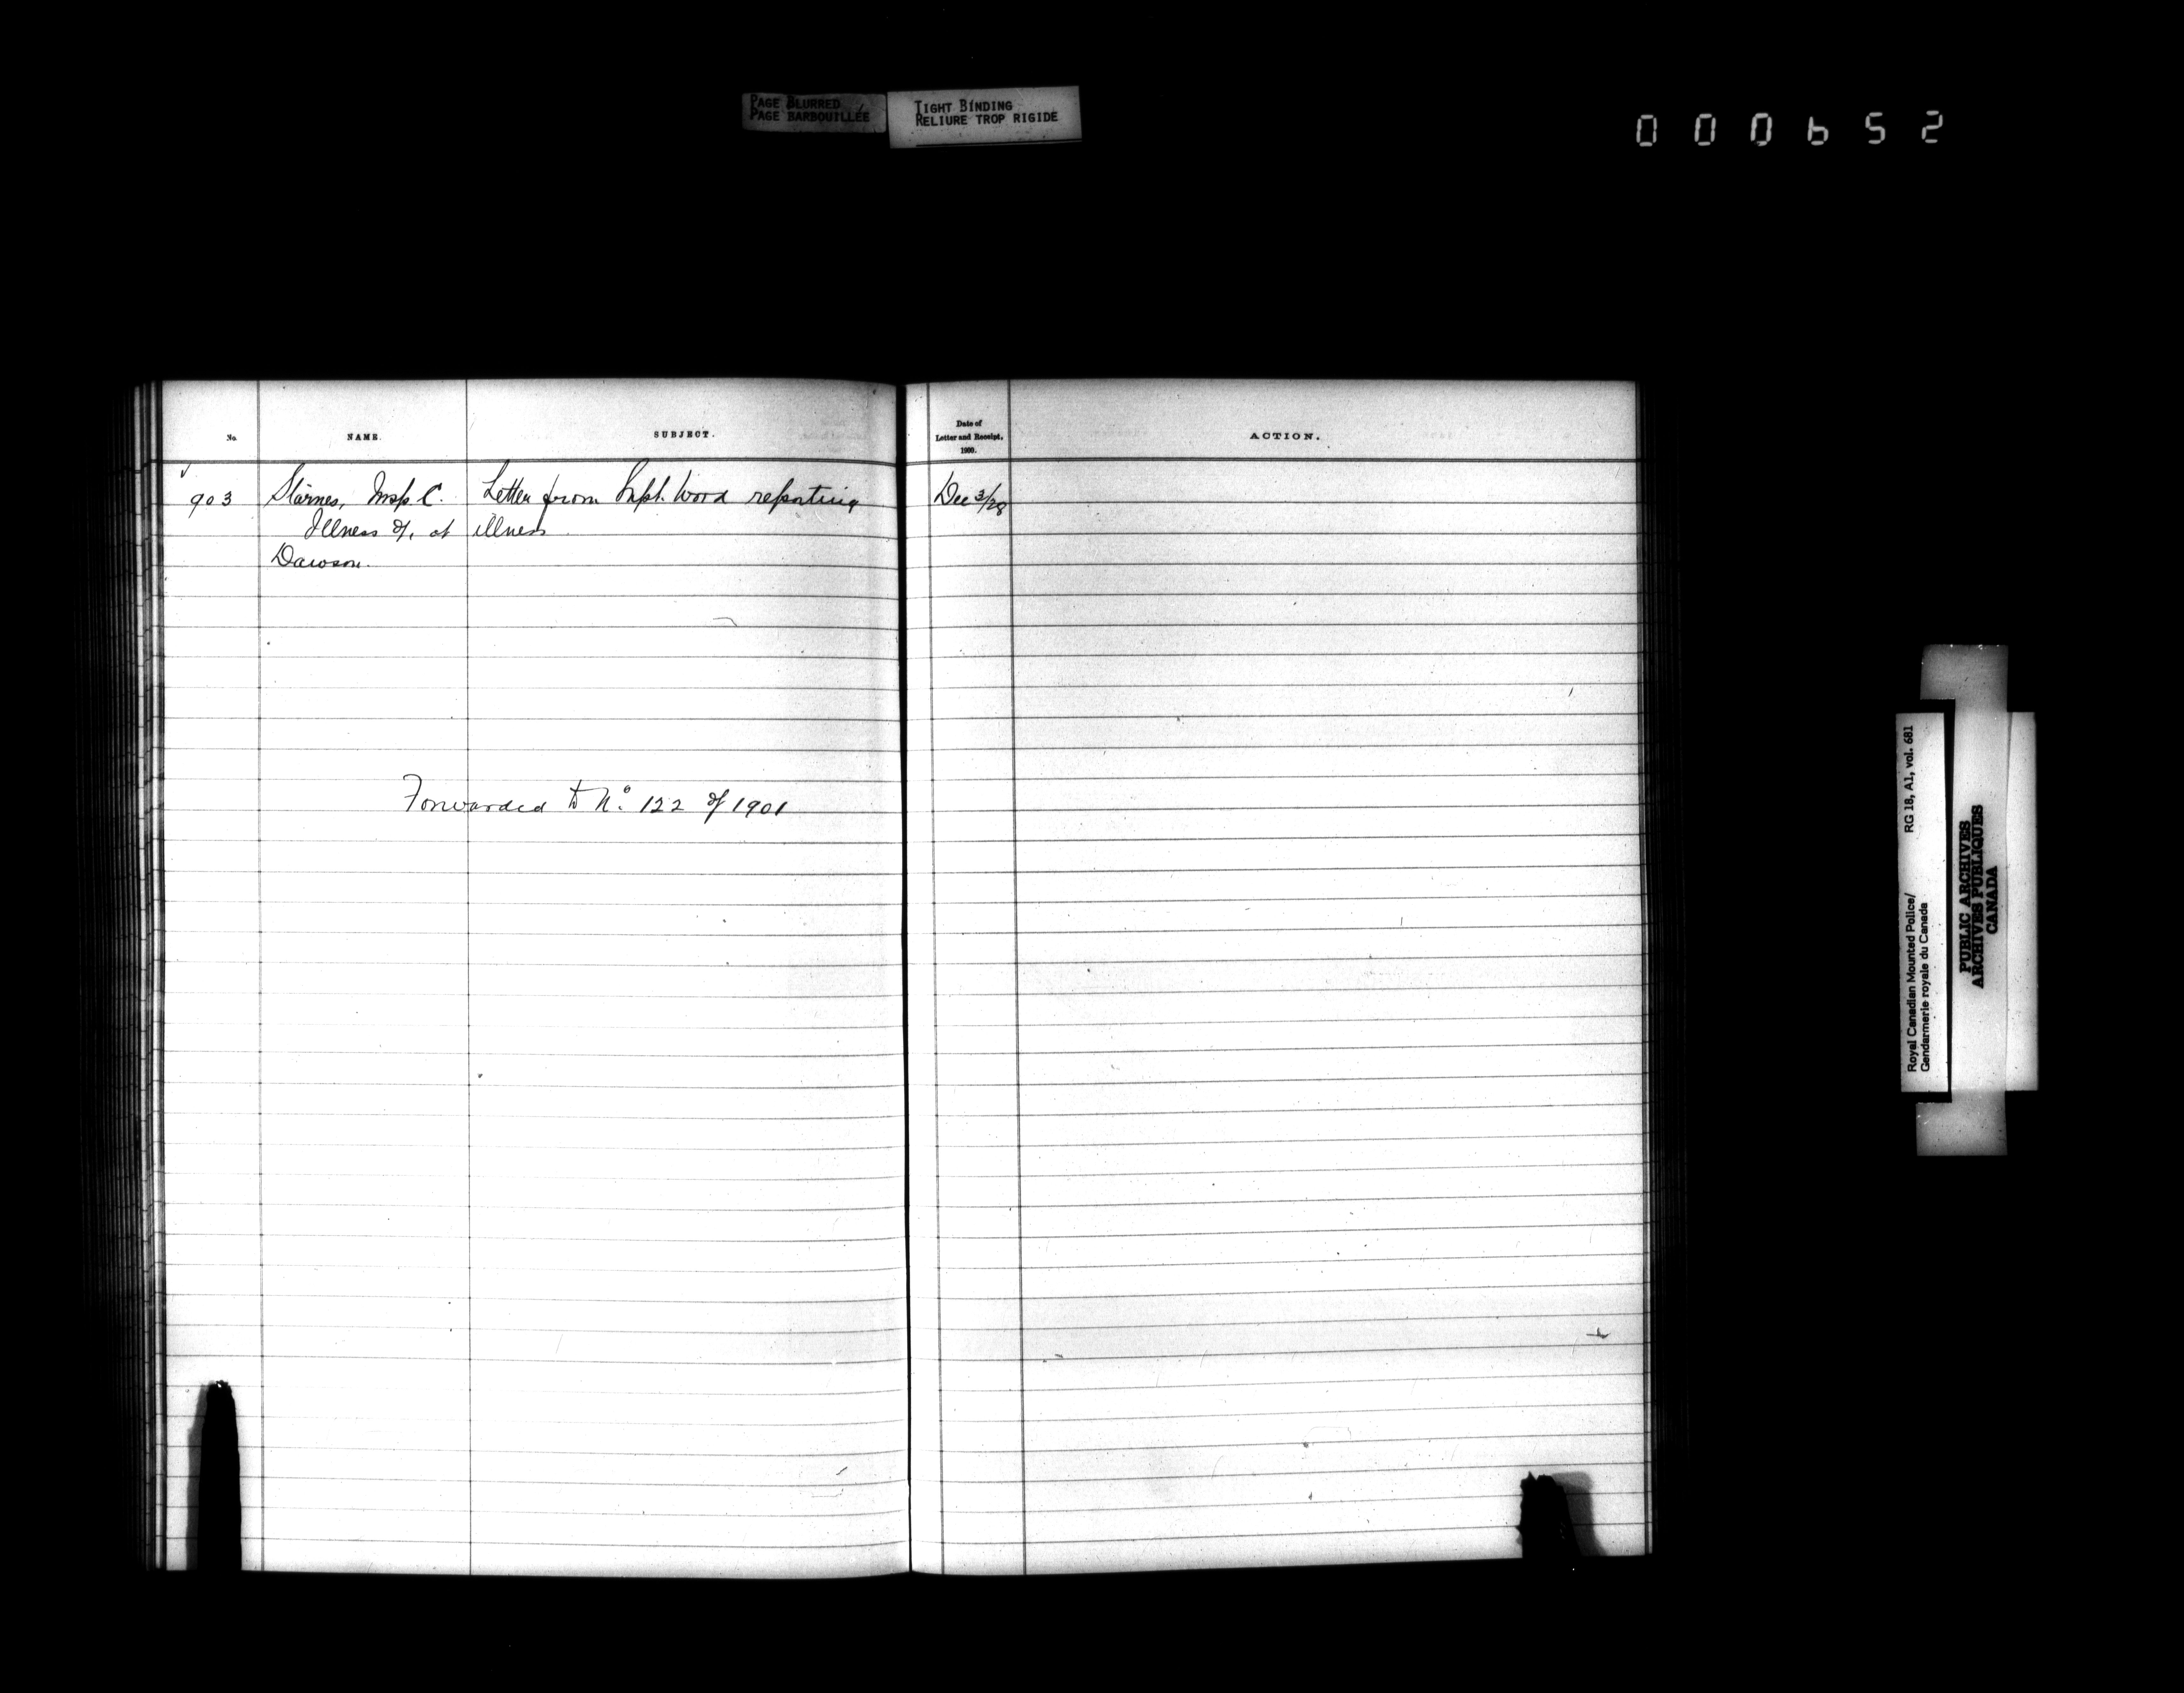 PAGE BLURRED
PAGE BARBOUILLÉE
TIGHT BINDING
RELIURE TROP RIGIDE
000652
No. NAME. SUBJECT. Date of Letter and Receipt, 1900. ACTION.
903 Starnes, Insp. C. Letter from Supt. Wood reporting Dec 3/28
Illness of, at illness
Dawson.
Forwarded to No. 122 of 1901
Royal Canadian Mounted Police/ RG 18, A1, vol. 681
Gendarmerie royale du Canada
PUBLIC ARCHIVES
ARCHIVES PUBLIQUES
CANADA